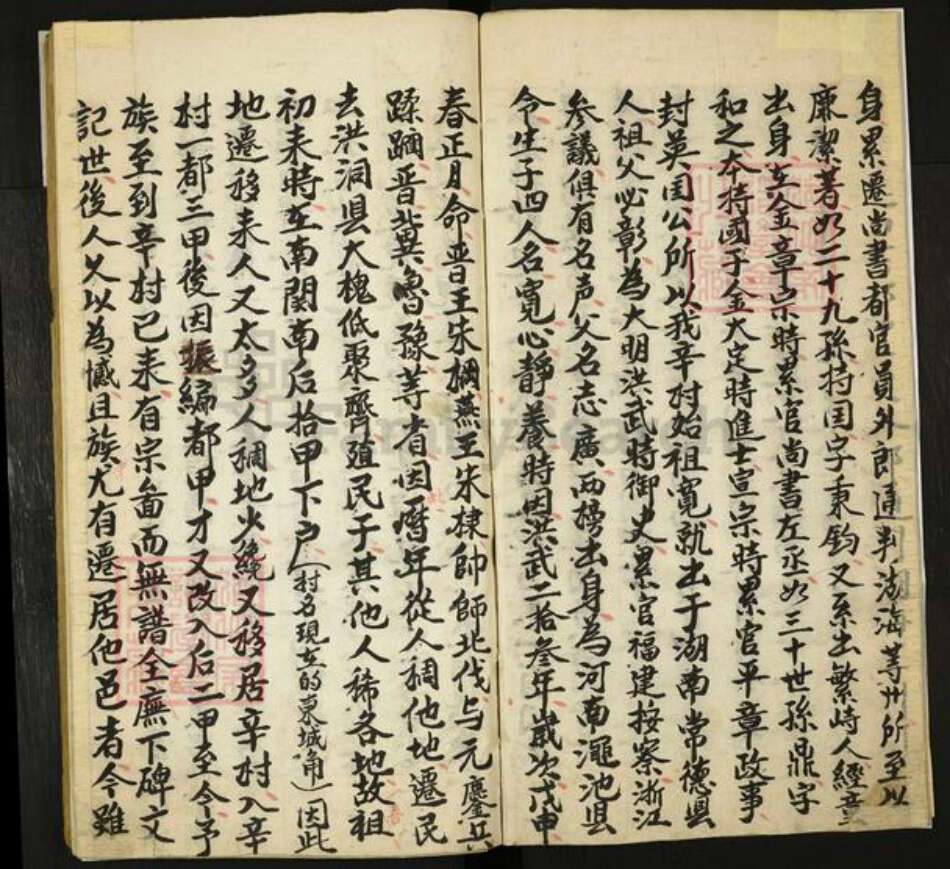 身累遷尚書都官員外郎通判湖海等州所至以
廉潔著如二十九孫持国字秉鈞又系出繁峙人經童
出身在金章宗時累官尚書左丞如三十世孫鼎字
和之本持國子金大定時進士宣宗時累官平章政事
封英国公所以我辛村始祖寬就出于湖南常德县
人祖父必彰為大明洪武時御史累官福建按察浙江
参議俱有名声父名志廣两榜出身為河南澠池县
令生子四人名寬心靜養時因洪武二拾叁年歲次戊申
春正月命晋王朱棡燕王朱棣帥師北伐与元鏖兵
蹂躪晋冀魯豫等省因曆年從人稠他地遷民
去洪洞县大槐低聚齊殖民于其他人稀各地故祖
初来時在南関南后拾甲下户(村名現在的東城角)因此
地遷移来人又太多人稠地少纔又移居辛村入辛
村一都三甲後因編都甲才又改入后二甲至今予
族至到辛村已来有宗畄而無譜全廡下碑文
記世後人乂以為憾且族尤有遷居他邑者今雖